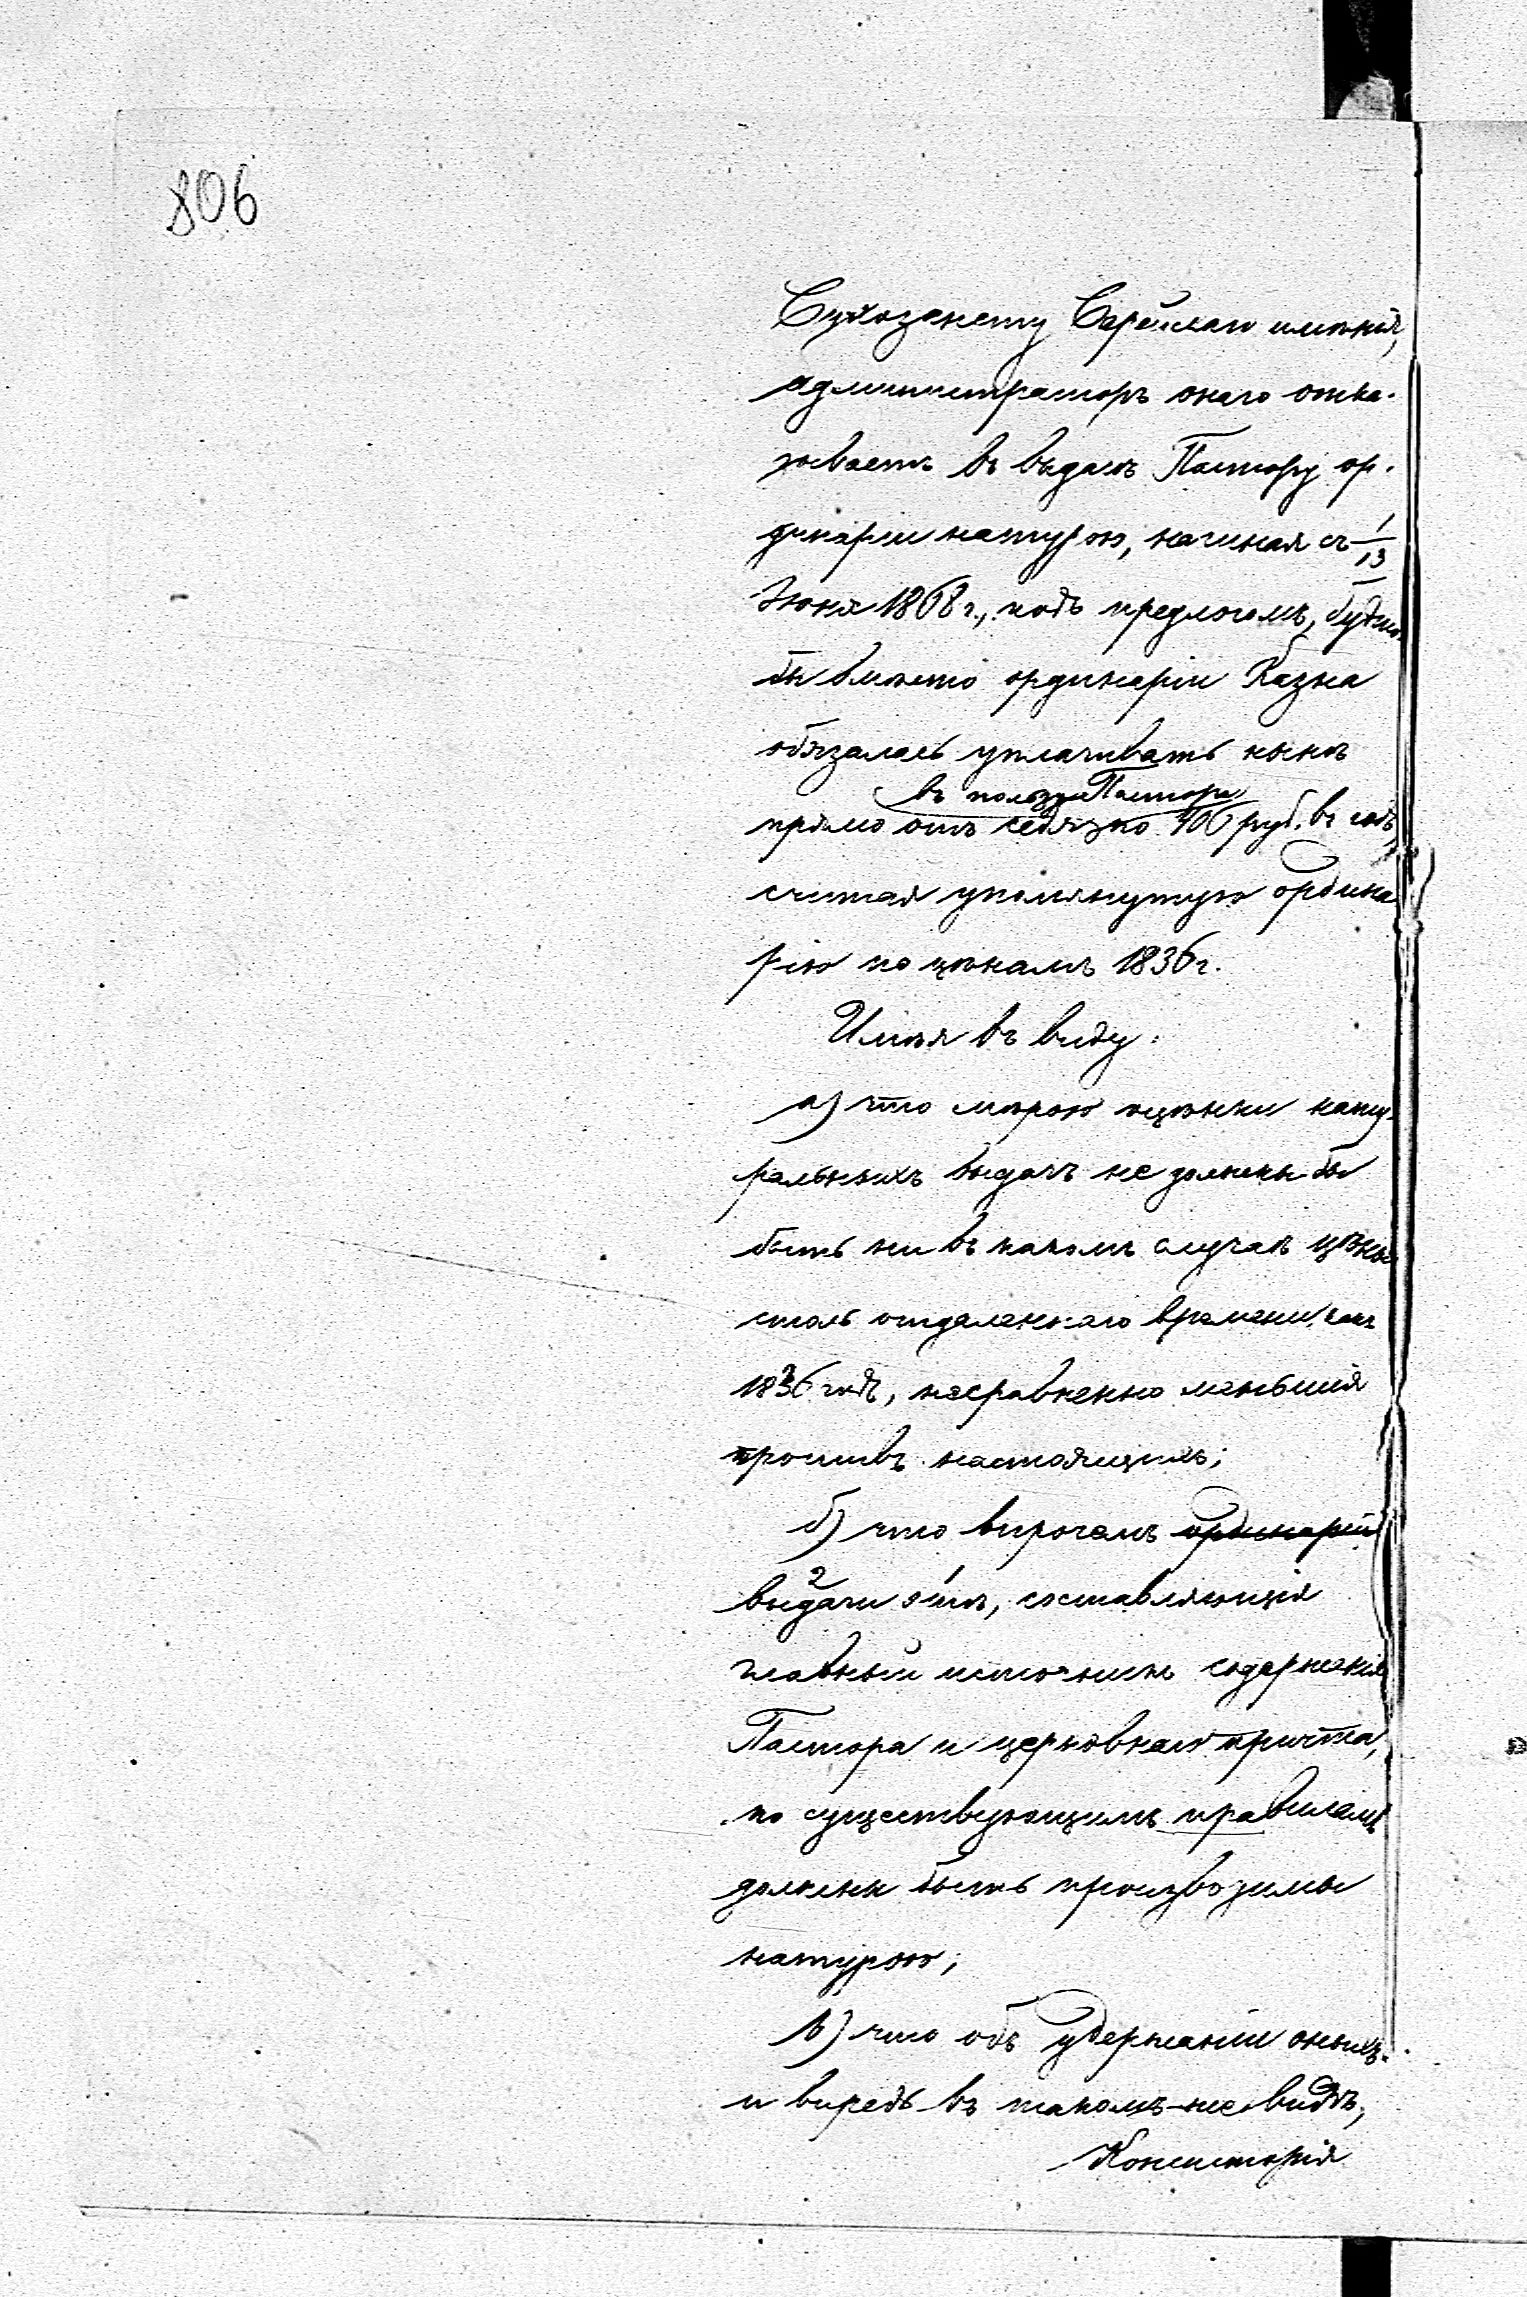 806
Сухозанету Серейскаго имѣнія,
администраторъ онаго отка-
зываетъ въ выдачѣ Пастору ор-
динаріи натурою, начиная съ 1/13
Іюня 1868 г., подъ предлогомъ, будто
бы вмѣсто ординаріи Казна
обязалась уплачивать нынѣ
въ пользу Пастора
прямо отъ себя по 406 руб. въ годъ,
считая упомянутую ордина
рію по цѣнамъ 1836 г.
Имѣя въ виду:
а) что мѣрою оцѣнки нату-
ральныхъ выдачъ не должны бы
быть ни въ какомъ случаѣ цѣны
столь отдаленнаго времени, какъ
1836 годъ, несравненно меньшія
противъ настоящихъ;
б) что впрочемъ ординаріи
выдачи эти, составляющія
главный источникъ содержанія
Пастора и церковнаго причта,
по существующимъ правиламъ
должны быть производимы
натурою;
в) что объ удержаніи оныхъ
и впредь въ такомъ-же видѣ,
Консисторія